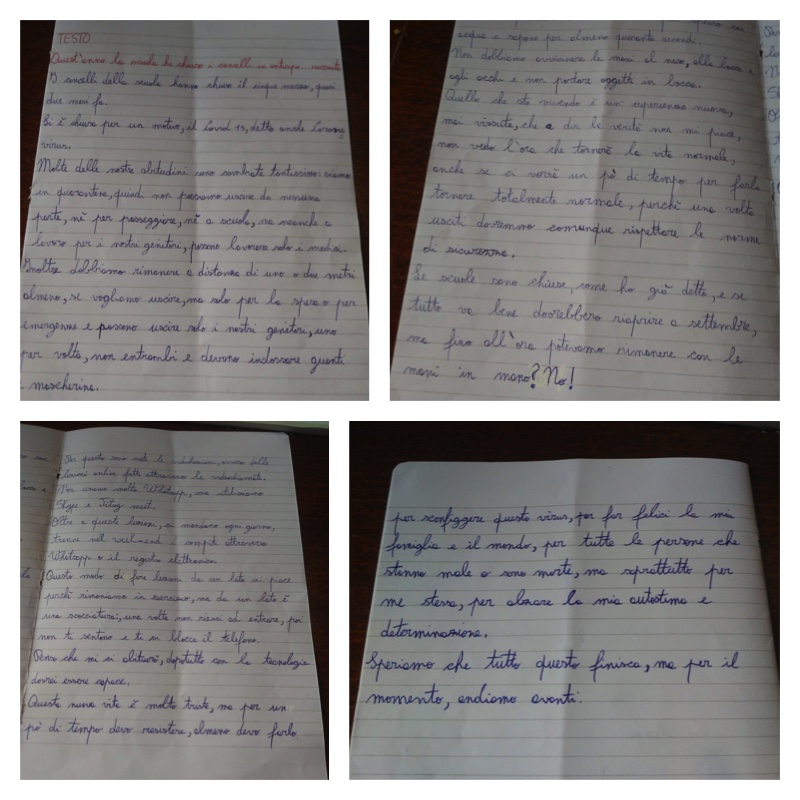 TESTO
Quest'anno la scuola ha chiuso i cancelli in
I cancelli della scuola hanno chiuso il cinque marzo, quasi
due mesi fa.
Si è chiusa per un motivo, il Covid 19, detto anche Corona
virus.
Molte delle nostre abitudini sono cambiate tantissimo: siamo
in quarantena, quindi non possiamo uscire da nessuna
parte, nè per passeggiare, nè a scuola, ma neanche a
lavoro per i nostri genitori, possono lavorare solo i medici.
Inoltre dobbiamo rimanere a distanza di uno o due metri
almeno, se vogliamo uscire, ma solo per la spesa o per
emergenze e possono uscire solo i nostri genitori, uno
per volta, non entrambi e devono indossare guanti
mascherine.
acqua e sapone per almeno quaranta secondi.
Non dobbiamo avvicinare le mani al naso, alla bocca e
agli occhi e non portare oggetti in bocca.
Quello che sto vivendo è un'esperienza nuova,
mai vissuta, che a dir la verità non mi piace,
non vedo l'ora che tornerà la vita normale,
anche se ci vorrà un pò di tempo per farla
tornare totalmente normale, perchè una volta
usciti dovremmo comunque rispettare le norme
di sicurezza.
Le scuole sono chiuse, come ho già detto, e se
tutto va bene dovrebbero riaprire a settembre,
ma fino all'ora potevamo rimanere con le
mani in mano? No!
Per questo sono nate le videolezioni, ovvero delle
lezioni online fatte attraverso le videochiamate.
Noi usiamo molto Whatsapp, ma utilizziamo
Skype e Jitsy meet.
Oltre a queste lezioni, ci mandano ogni giorno,
tranne nel week-end compiti attraverso
Whatsapp o il registro elettronico.
Questo modo di fare lezioni da un lato mi piace
perchè rimaniamo in esercizio, ma da un lato è
una scocciatura, una volta non riesci ad entrare, poi
non ti sentono e ti si blocca il telefono.
Penso che mi ci abituerò, dopotutto con la tecnologia
dovrei essere capace.
Questa nuova vita è molto triste, ma per un
pò di tempo devo resistere, almeno devo farlo
per sconfiggere questo virus, per far felici la mia
famiglia e il mondo, per tutte le persone che
stanno male o sono morte, ma soprattutto per
me stessa, per alzare la mia autostima e
determinazione.
Speriamo che tutto questo finisca, ma per il
momento, andiamo avanti.